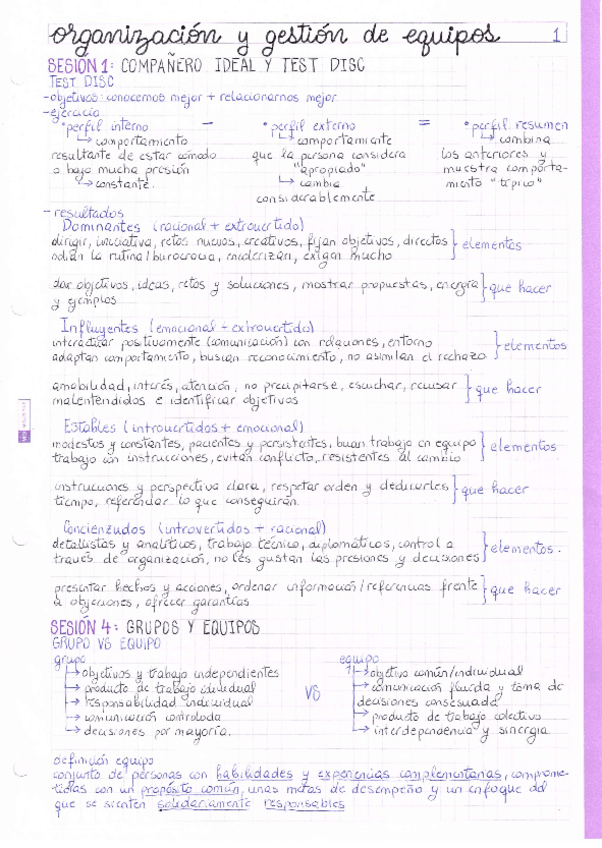 organización y gestión de equipos 1
SESIÓN 1: COMPAÑERO IDEAL Y TEST DISC
TEST DISC
-objetivos: conocernos mejor + relacionarnos mejor
-ejercicio
•perfil interno - •perfil externo = •perfil resumen
↳ comportamiento ↳ comportamiento ↳ combina
resultante de estar cómodo que la persona considera los anteriores y
o bajo mucha presión "apropiado" muestra comporta-
↳ constante. ↳ cambia miento "típico"
considerablemente
-resultados
Dominantes (racional + extrovertido)
dirigir, iniciativa, retos nuevos, creativos, fijan objetivos, directos } elementos
odian la rutina/burocracia, exigen mucho
dar objetivos, ideas, retos y soluciones, mostrar propuestas, energía } que hacer
y ejemplos
Influyentes (emocional + extrovertido)
interactuar positivamente (comunicación) con relaciones, entorno } elementos
adaptan comportamiento, buscan reconocimiento, no asimilan el rechazo
amabilidad, interés, atención, no precipitarse, escuchar, revisar } que hacer
malentendidos e identificar objetivos
Estables (introvertidos + emocional)
modestos y constantes, pacientes y persistentes, buen trabajo en equipo } elementos
trabajo con instrucciones, evitan conflicto, resistentes al cambio
instrucciones y perspectiva clara, respetar orden y dedicarles } que hacer
tiempo, referenciar lo que conseguirán.
Concienzudos (introvertidos + racional)
detallistas y analíticos, trabajo técnico, diplomáticos, control a } elementos.
través de organización, no les gustan las presiones y decisiones
presentar hechos y acciones, ordenar información/referencias frente } que hacer
a objeciones, ofrecer garantías
SESIÓN 4: GRUPOS Y EQUIPOS
GRUPO VS EQUIPO
grupo equipo
↳ objetivos y trabajo independientes ↳ objetivo común/individual
↳ producto de trabajo individual VS ↳ comunicación fluida y toma de
↳ responsabilidad individual decisiones consesuada
↳ comunicación controlada ↳ producto de trabajo colectivo
↳ decisiones por mayoría. ↳ interdependencia y sinergia.
definición equipo
conjunto de personas con habilidades y experiencias complementarias, comprome-
tidas con un propósito común, unas metas de desempeño y un enfoque del
que se sienten solidariamente responsables